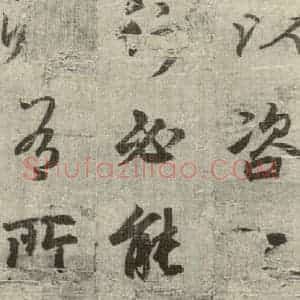 以咨之
行必能
有所
shufaziliao.com